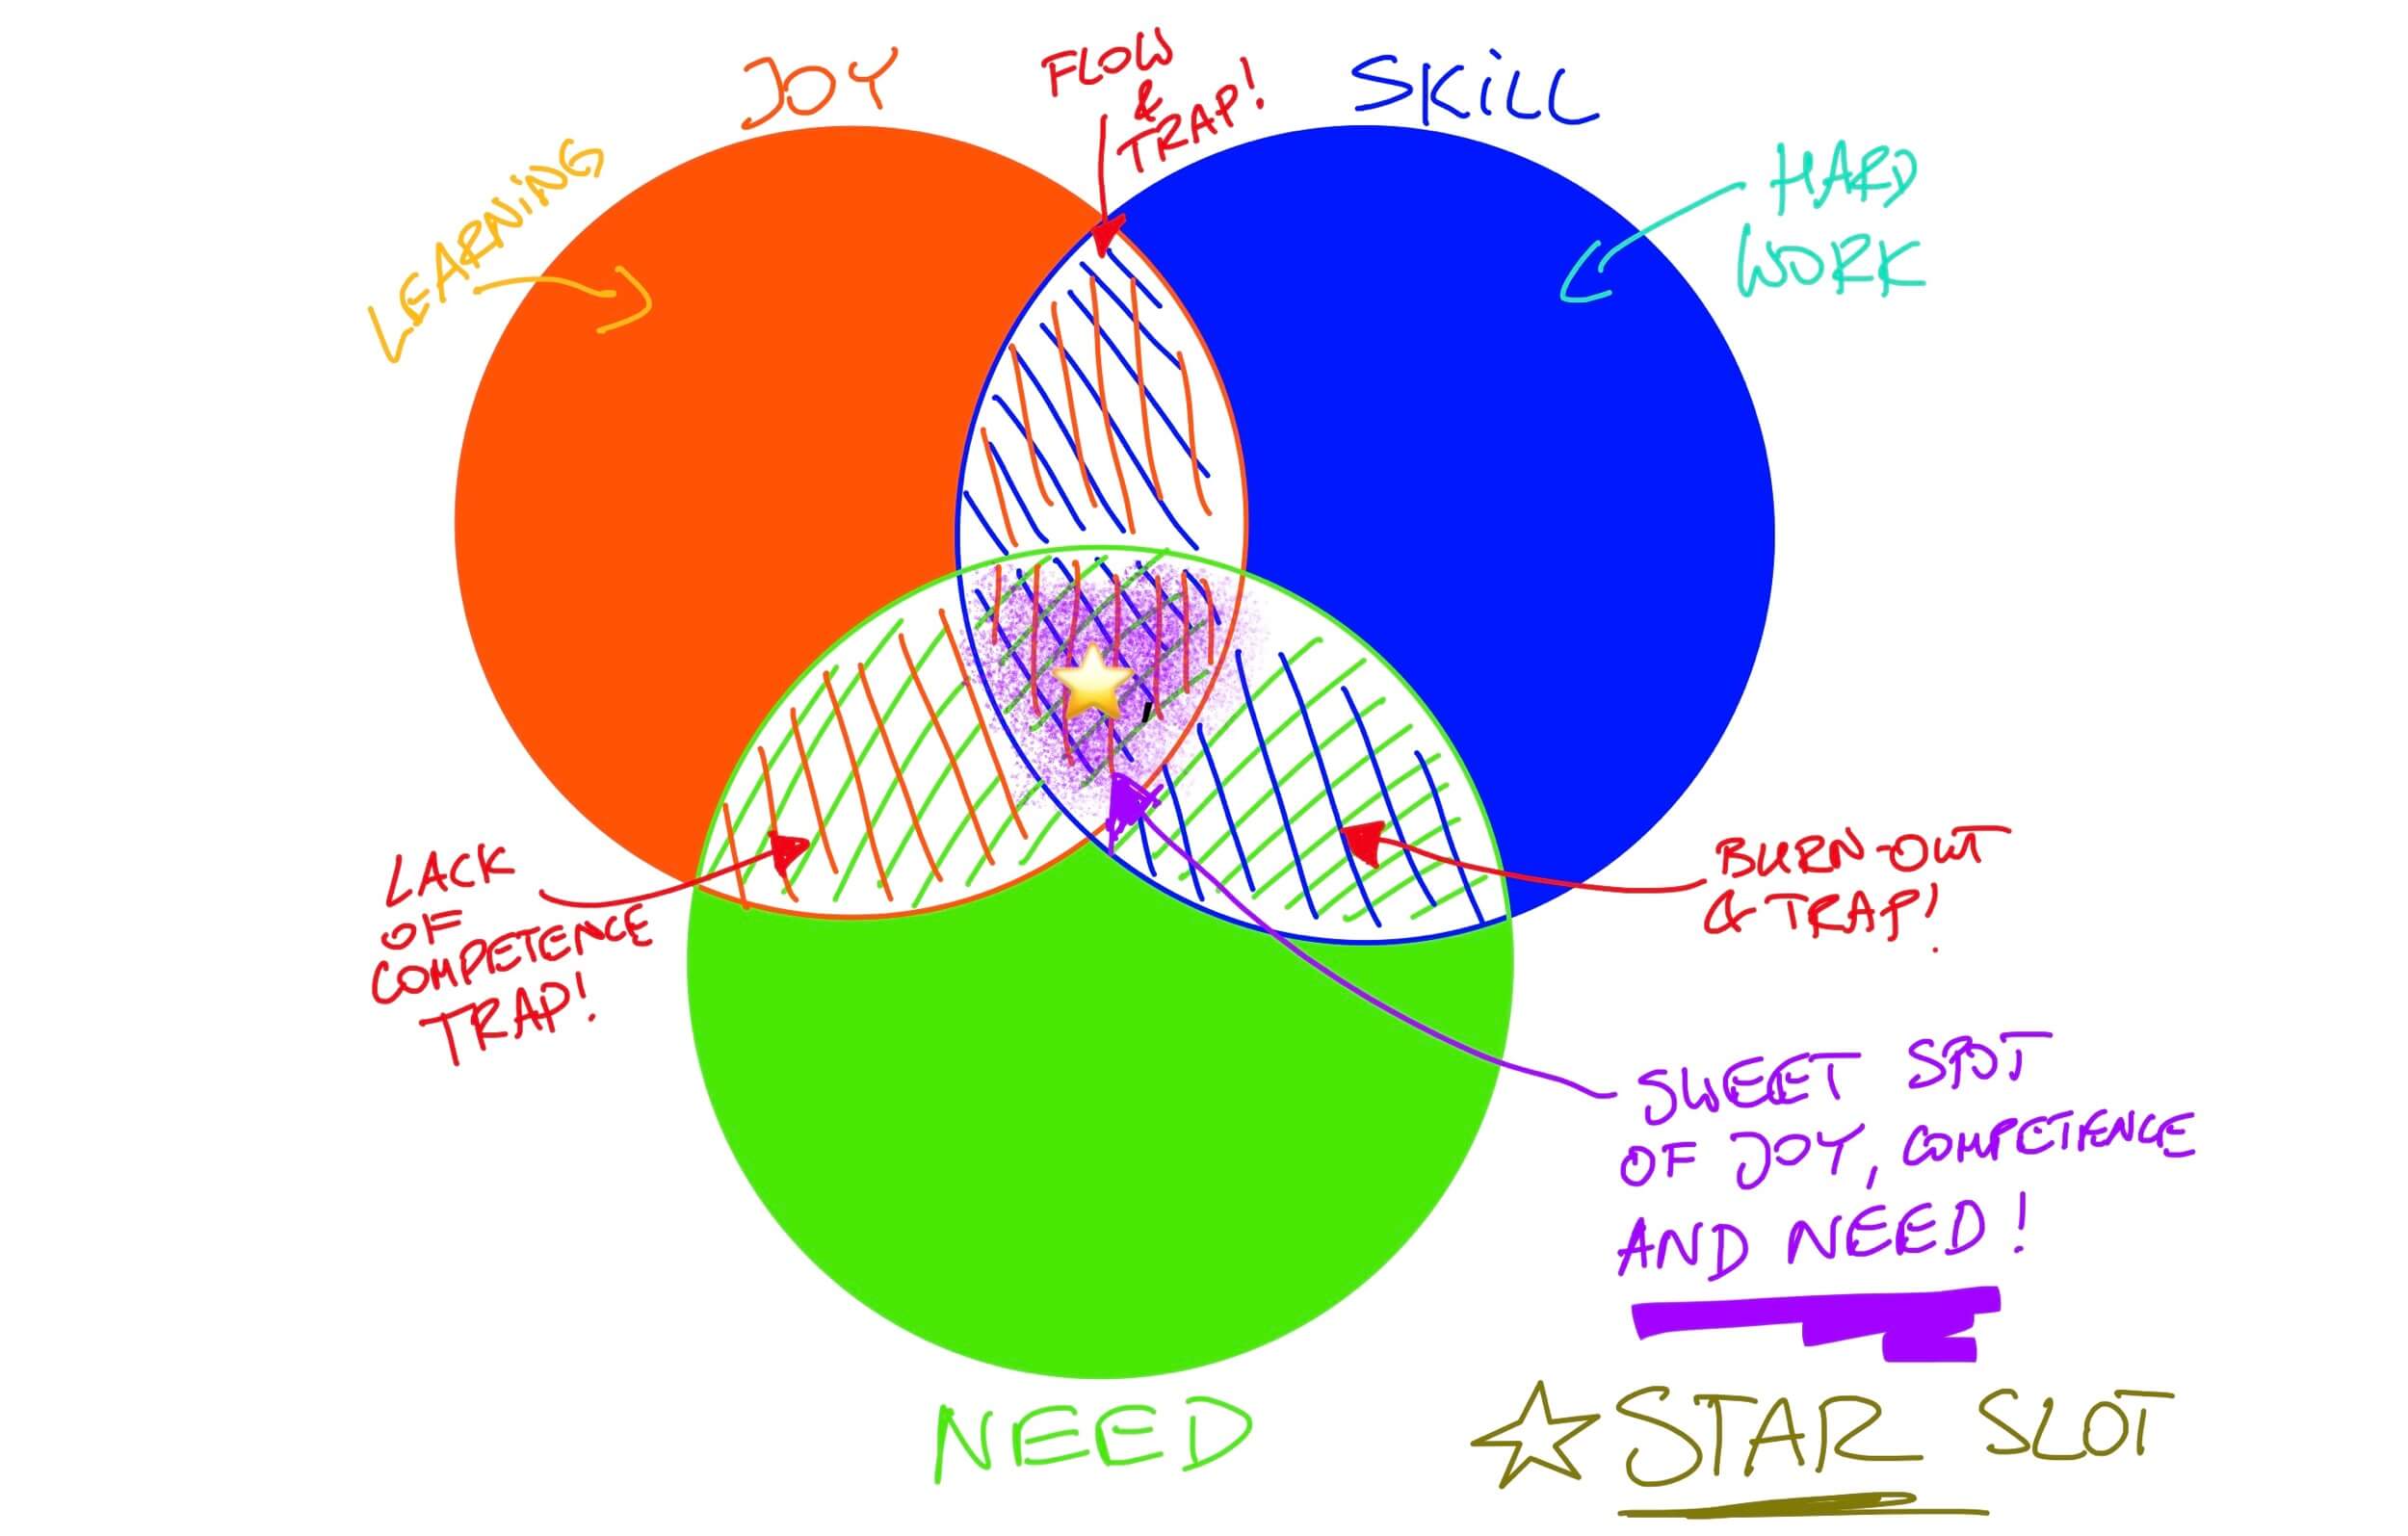 JOY
FLOW
&
TRAP!
SKILL
LEARNING
HARD
WORK
LACK
OF
COMPETENCE
TRAP!
BURN-OUT
& TRAP!
SWEET SPOT
OF JOY, COMPETENCE
AND NEED!
NEED
STAR SLOT